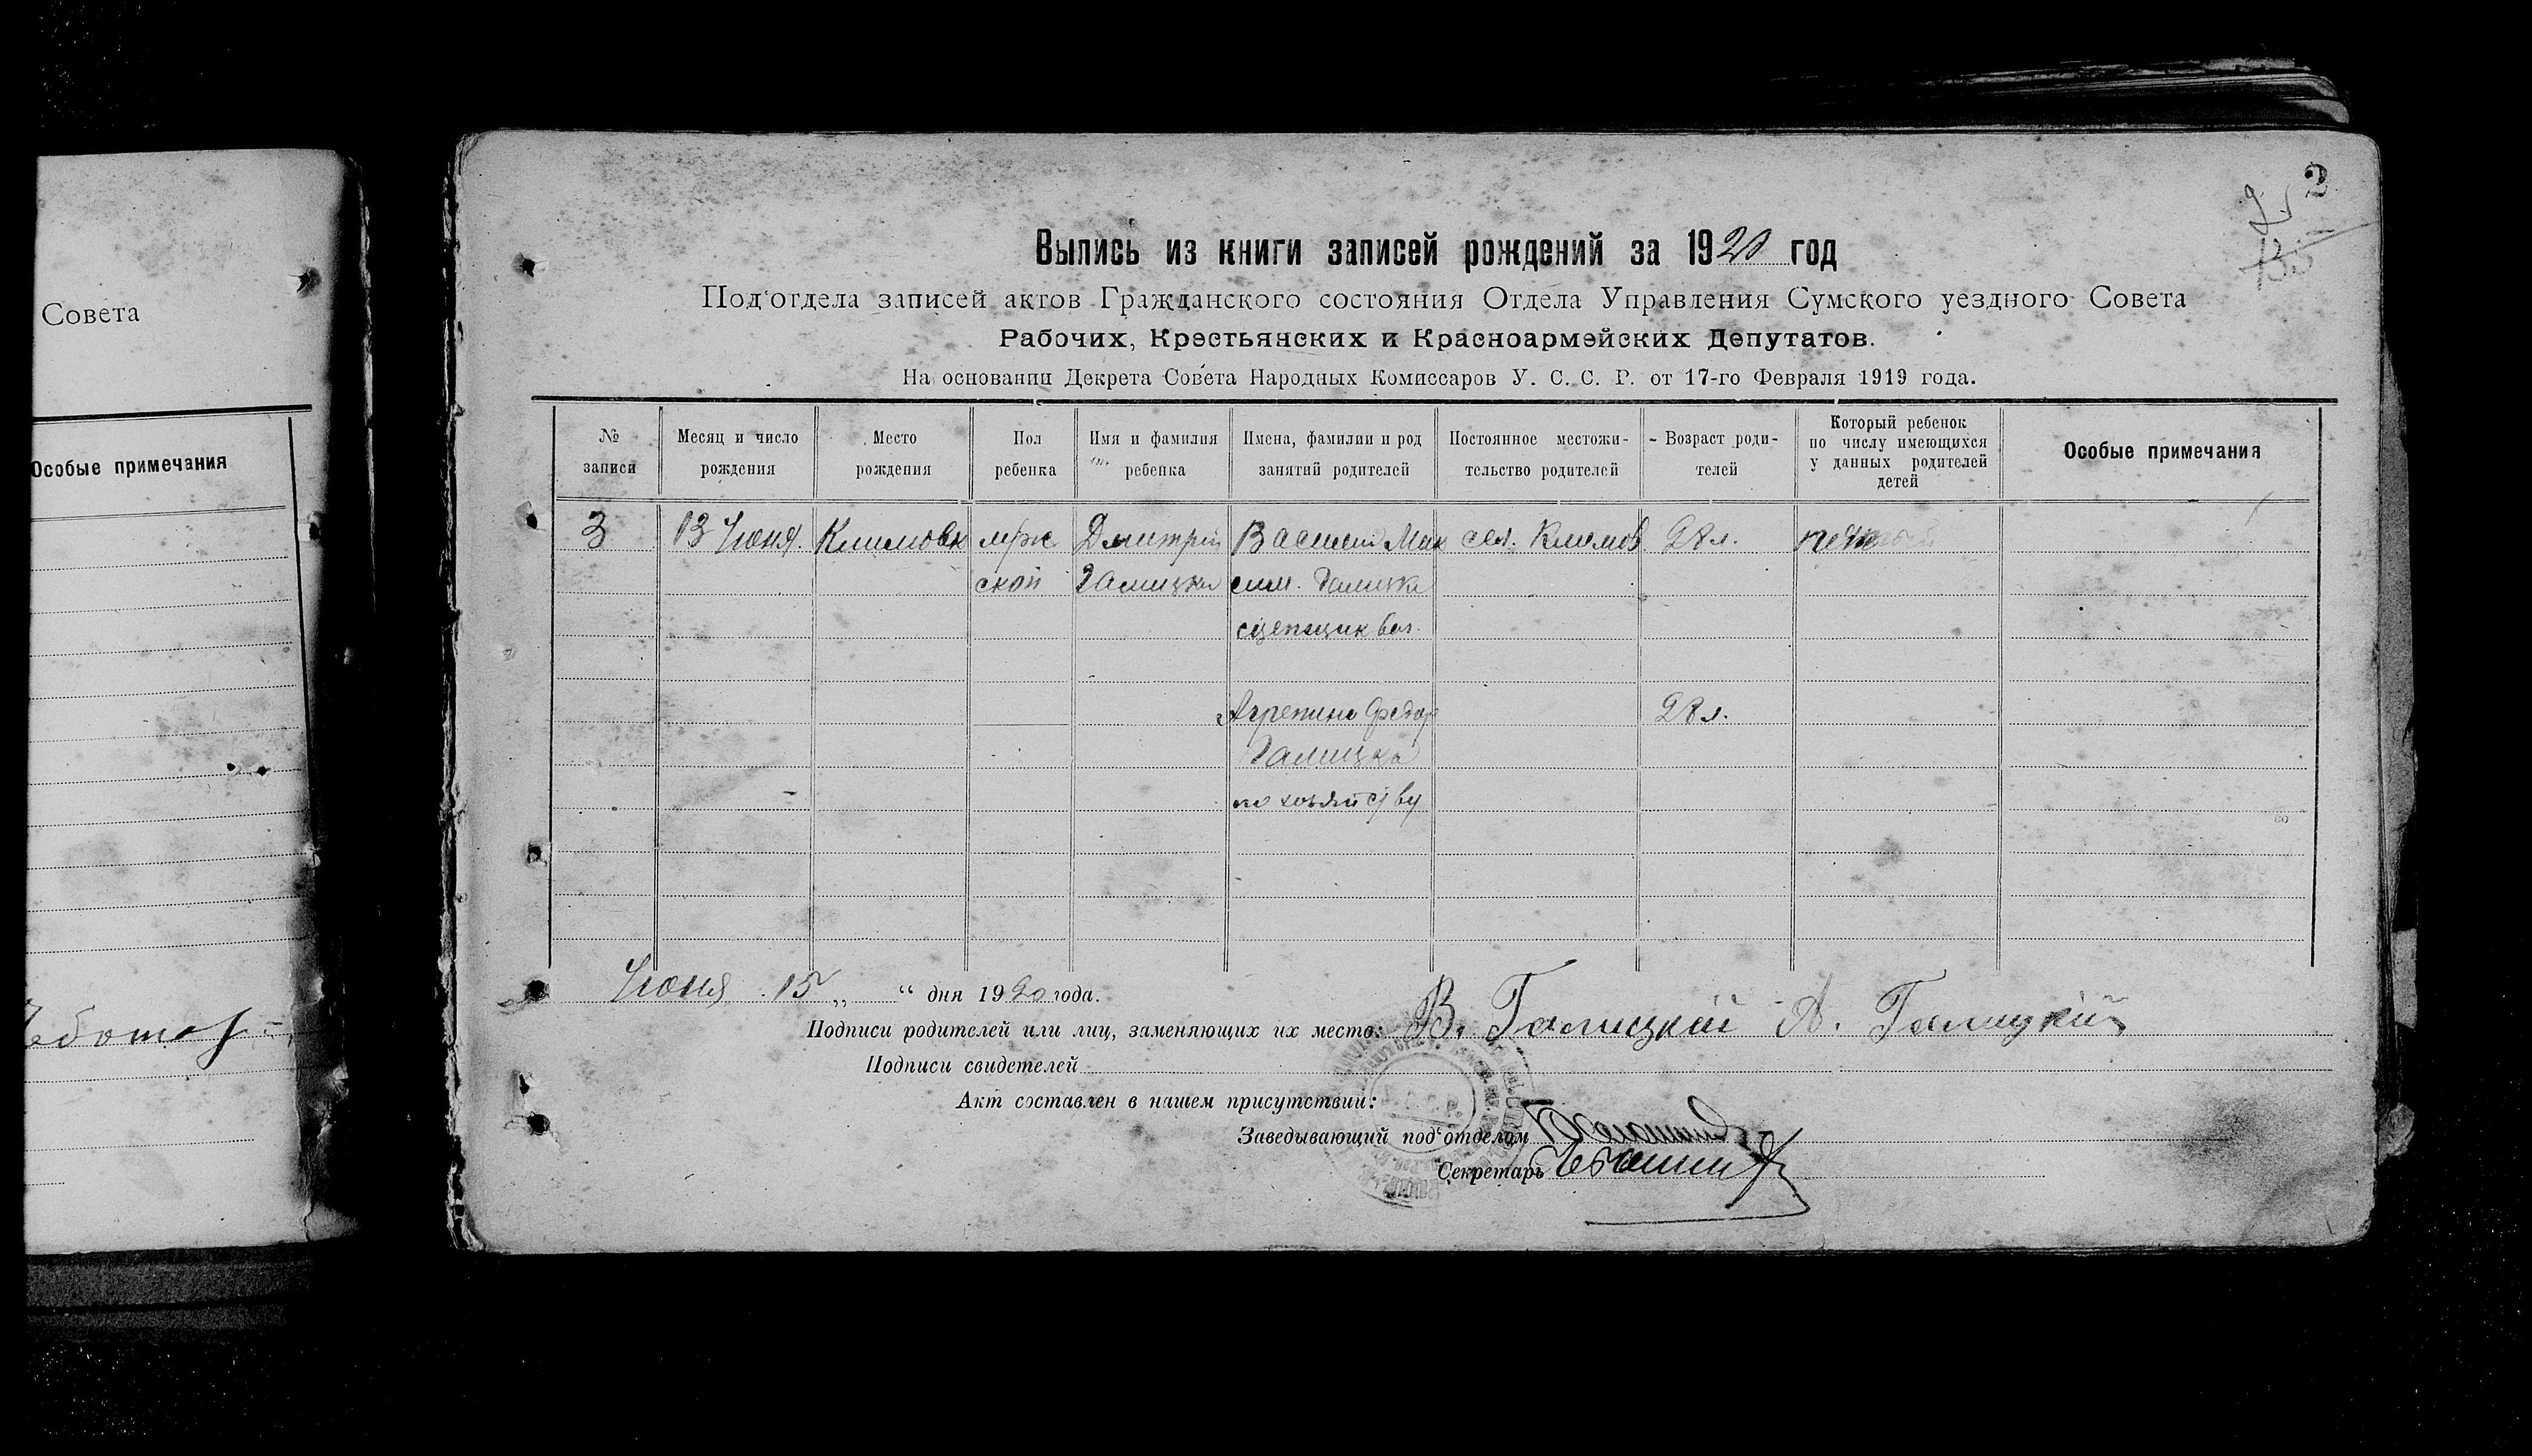 2
135
Совета
Особые примечания
Выпись из книги записей рождений за 1920 год
Под'отдела записей актов Гражданского состояния Отдела Управления Сумского уездного Совета
Рабочих, Крестьянских и Красноармейских Депутатов.
На основании Декрета Совета Народных Комиссаров У. С. С. Р. от 17-го Февраля 1919 года.
№ записи
Месяц и число рождения
Место рождения
Пол ребенка
Имя и фамилия ребенка
Имена, фамилии и род занятий родителей
Постоянное местожительство родителей
Возраст родителей
Который ребенок по числу имеющихся у данных родителей детей
Особые примечания
3 13 Июня. Климовк мрж Дмитрий Василий Мак сел. Климов 28 л.
ской Галицка сим. Галицка
сцепщик ваг.
Агрепина Федор 28 л.
Галицка
по хозяйству
Июня 15 „ “ дня 1920 года.
Подписи родителей или лиц, заменяющих их место: В. Галицкий А. Галицкий
Подписи свидетелей
Акт составлен в нашем присутствии:
Заведывающий под'отделом
Секретарь